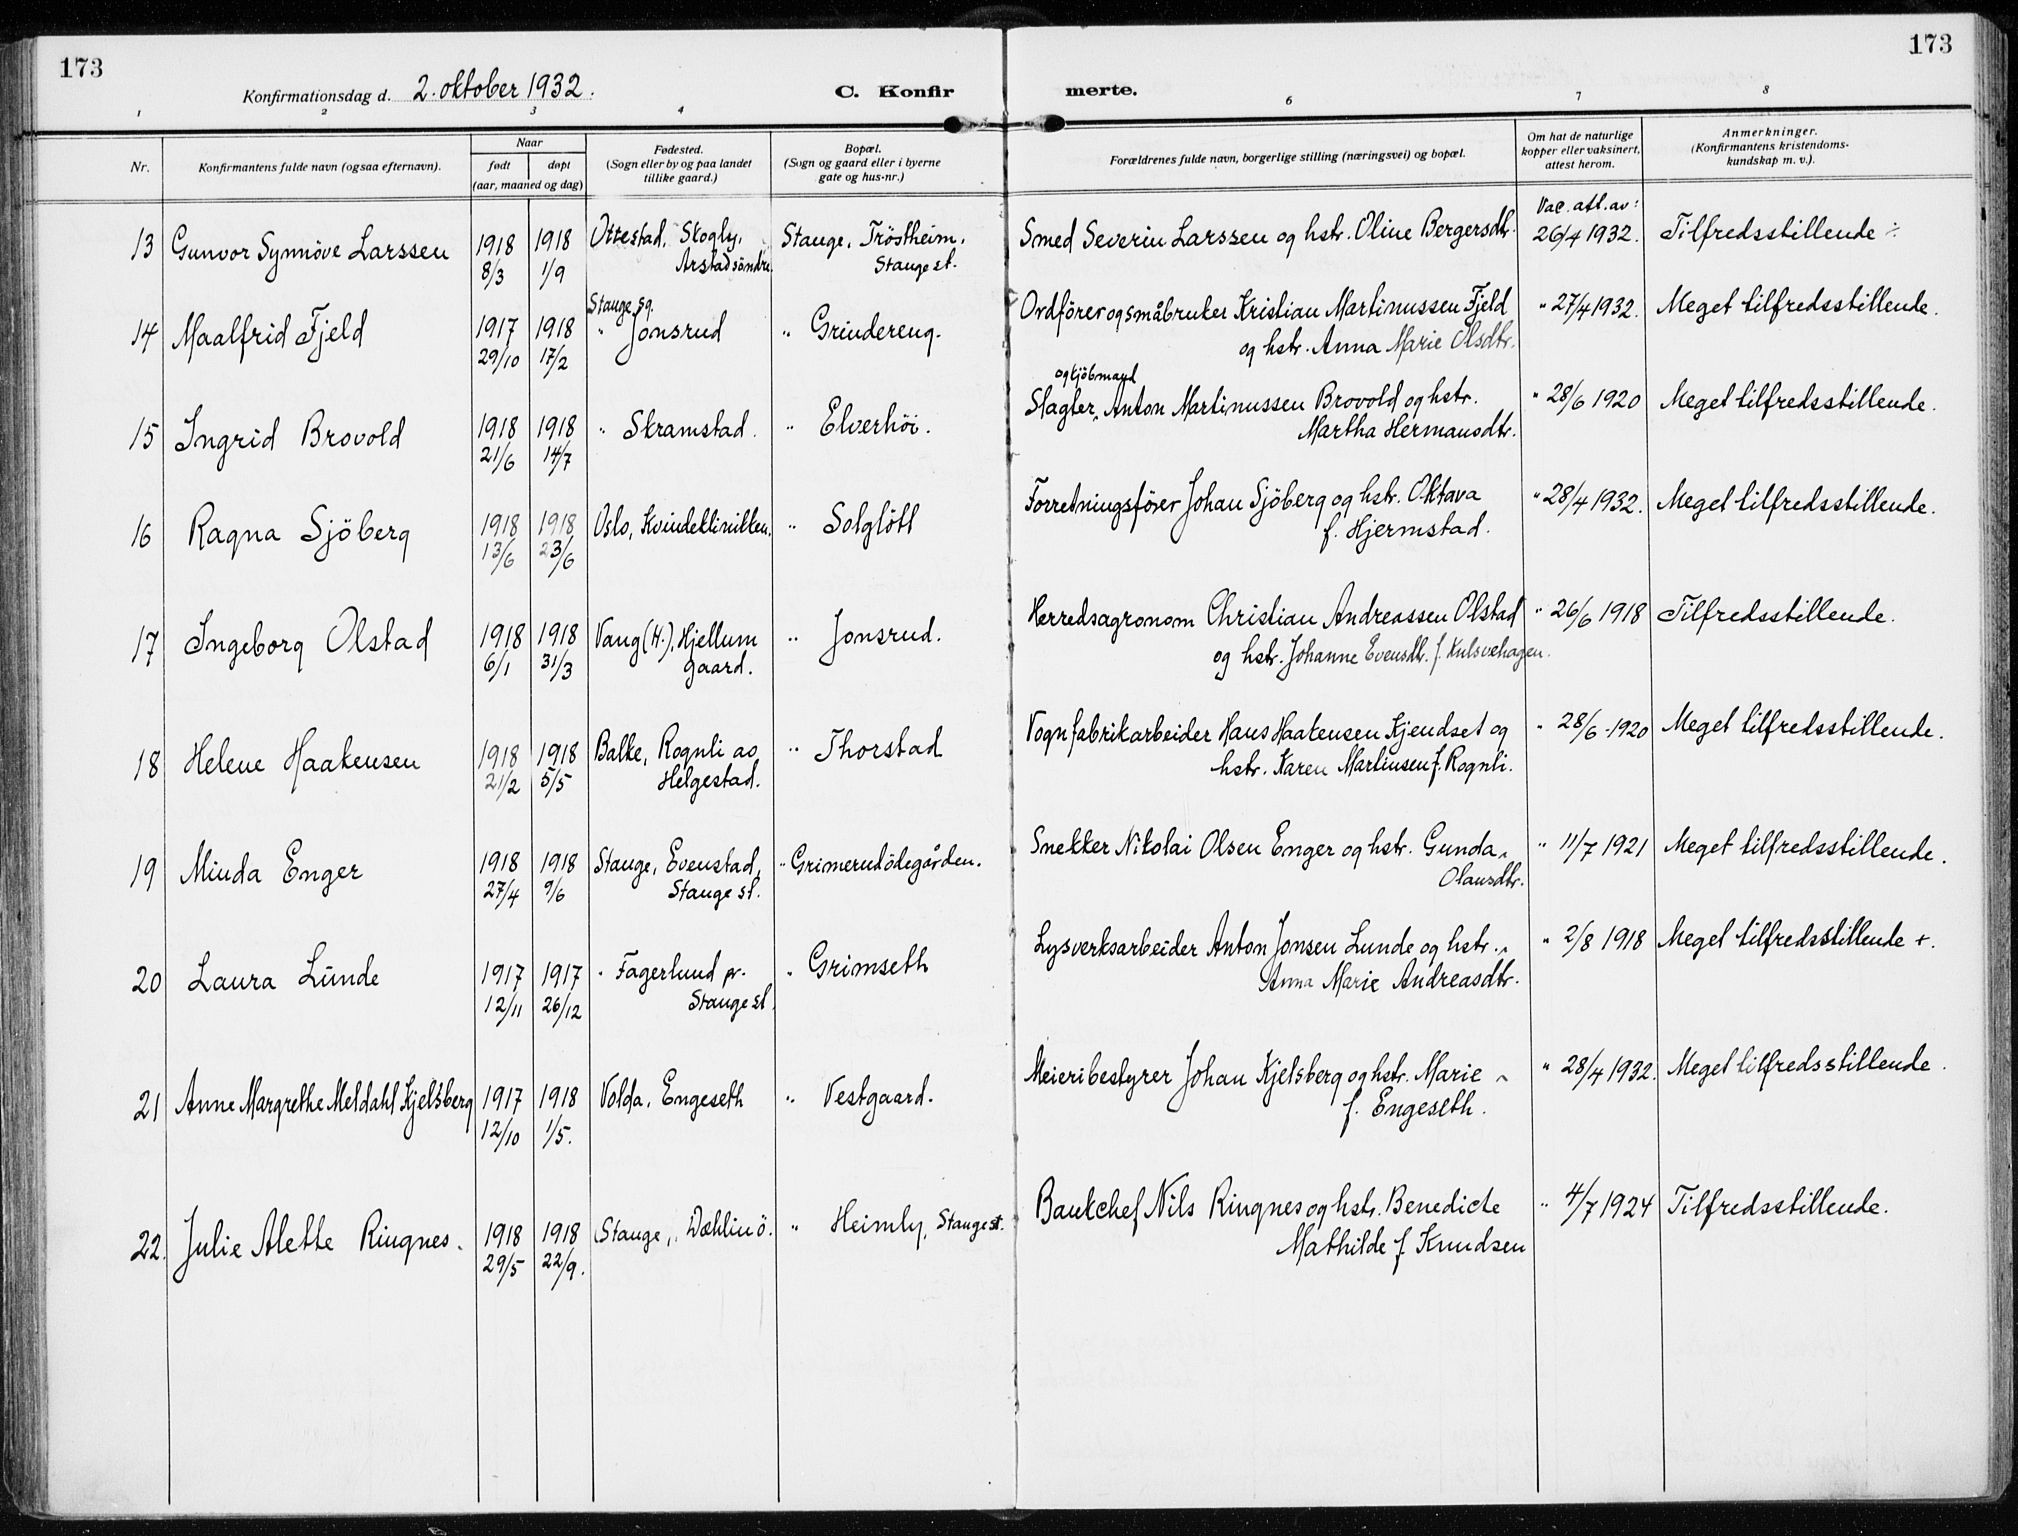 173
173
Konfirmationsdag d. 2. oktober 1932.
C. Konfirmerte.
1 2 3 4 6 7 8
Nr.
Konfirmantens fulde navn (ogsaa efternavn).
Naar
født
døpt
(aar, maaned og dag)
Fødested.
(Sogn eller by og paa landet
tillike gaard.)
Bopæl.
(Sogn og gaard eller i byerne
gate og hus-nr.)
Forældrenes fulde navn, borgerlige stilling (næringsvei) og bopæl.
Om hat de naturlige
kopper eller vaksinert,
attest herom.
Anmerkninger.
(Konfirmantens kristendoms-
kundskap m. v.).
Vac. att. av:
13 Gunvor Synnöve Larssen 1918 1918 Ottestad, Skogly, Stange, Tröstheim, Smed Severin Larssen og hstr. Oline Bergersdtr. 26/4 1932. Tilfredsstillende ÷
8/3 1/9 Arstad söndre. Stange st.
Stange sg.
14 Maalfrid Fjeld 1917 1918 " Jonsrud " Grindereng. Ordförer og småbruker Kristian Martinussen Fjeld " 27/4 1932. Meget tilfredsstillende.
29/10 17/2 og hstr. Anna Marie Olsdtr.
og kjöbmand
15 Ingrid Brovold 1918 1918 " Skramstad. " Elverhöi. Slagter Anton Martinussen Brovold og hstr. " 28/6 1920 Meget tilfredsstillende.
21/6 14/7 Martha Hermansdtr.
16 Ragna Sjöberg 1918 1918 Oslo, Kvindeklinikken. " Solglött Forretningsförer Johan Sjöberg og hstr. Oktava " 28/4 1932. Meget tilfredsstillende.
13/6 23/6 f. Hjermstad.
17 Ingeborg Olstad 1918 1918 Vang (H.), Hjellum " Jonsrud. Herredsagronom Christian Andreassen Olstad " 26/6 1918 Tilfredsstillende.
6/1 31/3 gaard. og hstr. Johanne Evensdtr. f. Kulsvehagen.
18 Helene Haakensen 1918 1918 Balke, Rognli av " Thorstad Vognfabrikarbeider Hans Haakensen Kjendset og " 28/6 1920 Meget tilfredsstillende.
21/2 5/5 Helgestad. hstr. Karen Martinsen f. Rognli.
19 Minda Enger 1918 1918 Stange, Evenstad, " Grimerudödegården. Snekker Nikolai Olsen Enger og hstr. Gunda " 11/7 1921 Meget tilfredsstillende.
27/4 9/6 Stange st. Olausdtr.
20 Laura Lunde 1917 1917 " Fagerlund pr. " Grimseth Lysverksarbeider Anton Jonsen Lunde og hstr. " 2/8 1918 Meget tilfredsstillende +.
12/11 26/12 Stange st. Anna Marie Andreasdtr.
21 Anne Margrethe Meldahl Kjelsberg 1917 1918 Volda, Engeseth " Vestgaard. Meieribestyrer Johan Kjelsberg og hstr. Marie " 28/4 1932. Meget tilfredsstillende.
12/10 1/5. f. Engeseth.
22. Julie Alette Ringnes. 1918 1918 Stange, Dæhlin ö. " Heimly, Stange st. Bankchef Nils Ringnes og hstr. Benedicte " 4/7 1924 Tilfredsstillende.
29/5 22/9. Mathilde f. Knudsen